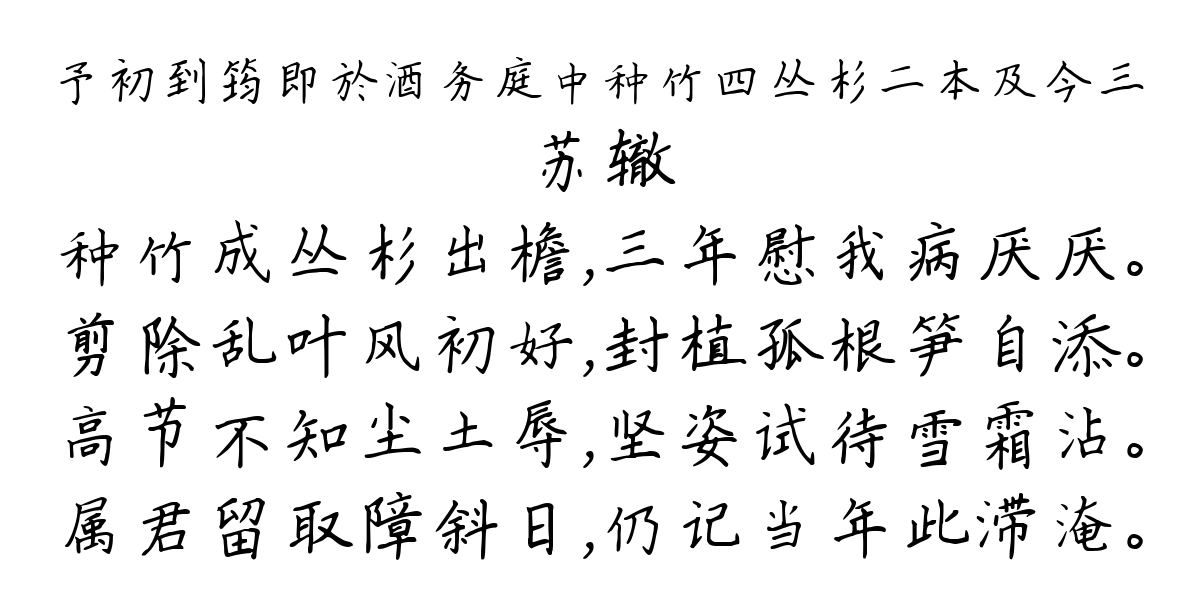 予初到筠即於酒务庭中种竹四丛杉二本及今三
苏辙
种竹成丛杉出檐,三年慰我病厌厌。
剪除乱叶风初好,封植孤根笋自添。
高节不知尘土辱,坚姿试待雪霜沾。
属君留取障斜日,仍记当年此滞淹。